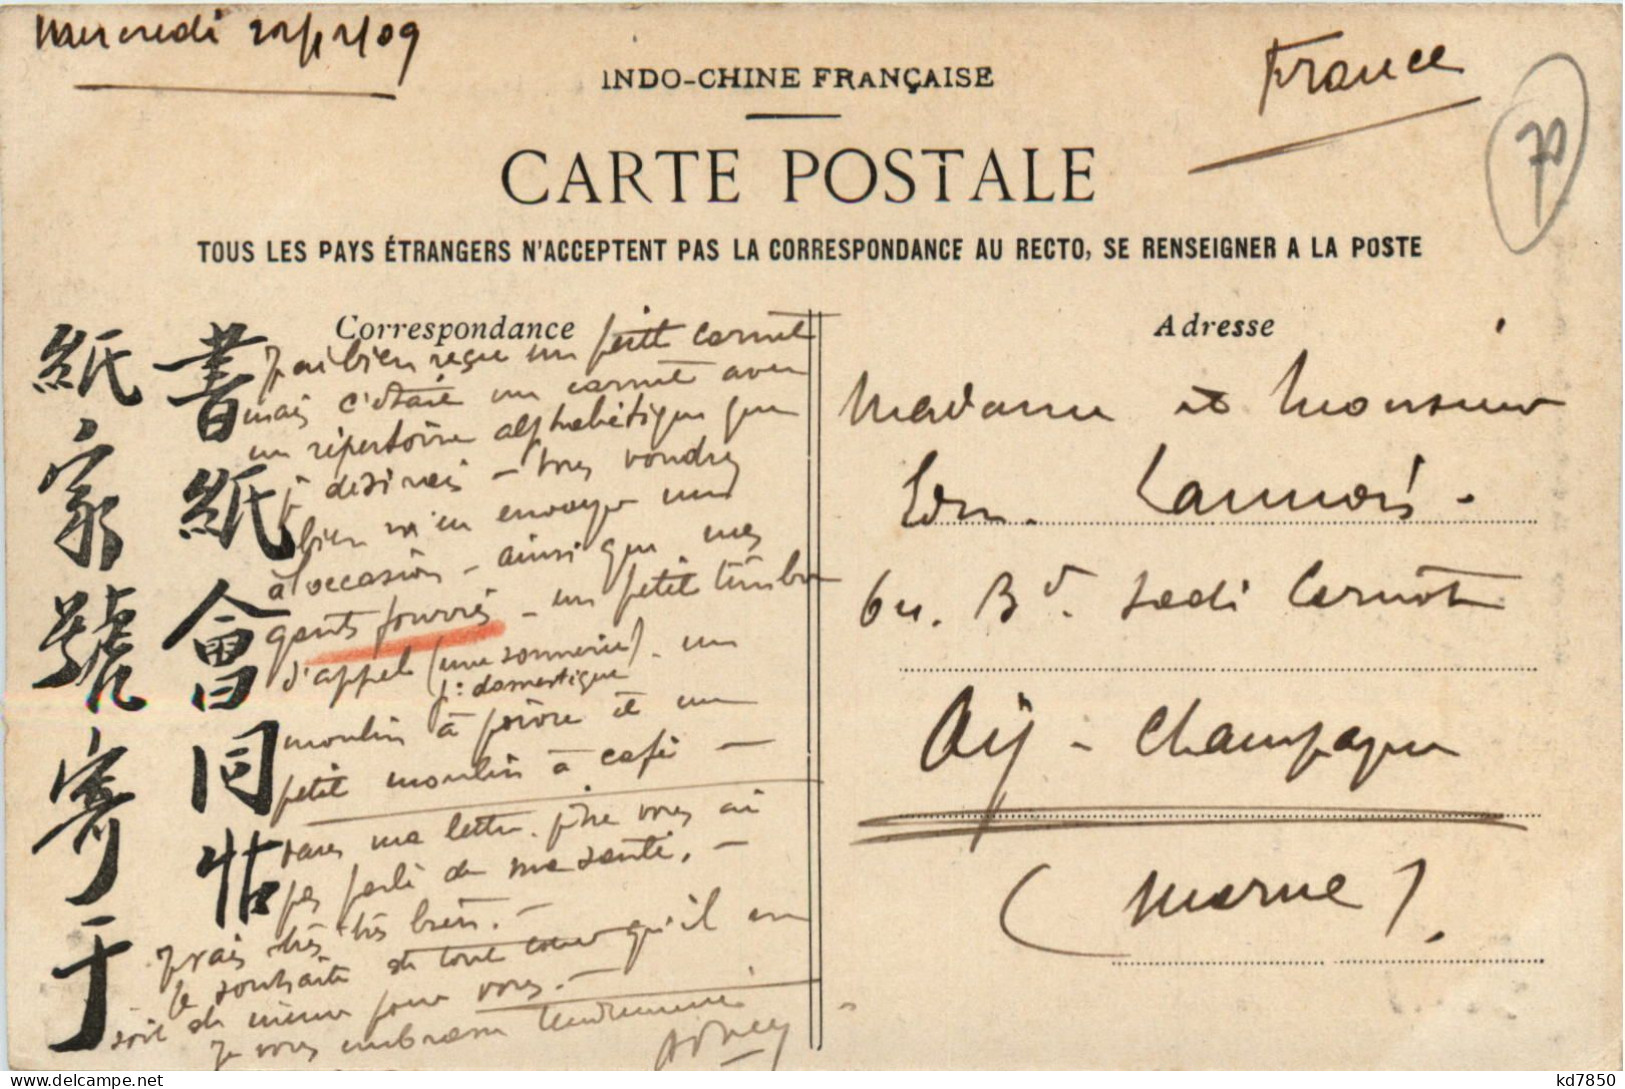 Mercredi 22/12/09
France
70
INDO-CHINE FRANÇAISE
CARTE POSTALE
TOUS LES PAYS ÉTRANGERS N'ACCEPTENT PAS LA CORRESPONDANCE AU RECTO, SE RENSEIGNER A LA POSTE
Correspondance
書紙會同帖
紙家號寄于
J'ai bien reçu un petit carnet
mais c'était un carnet avec
un répertoire alphabétique que
je désirais - vous voudrez
bien m'en envoyer un
à l'occasion - ainsi que mes
gants fourrés - un petit timbre
d'appel (une sonnerie) - un
domestique
moulin à poivre et un
petit moulin à café -
dans ma lettre je ne vous ai
pas parlé de ma santé, -
Je vais très très bien. -
Je souhaite de tout cœur qu'il en
soit de même pour vous. -
Je vous embrasse tendrement
Adresse
Madame et Monsieur
Edm. Lannois.
Bd. Sadi Carnot
Aÿ - Champagne
(Marne).
kd7850